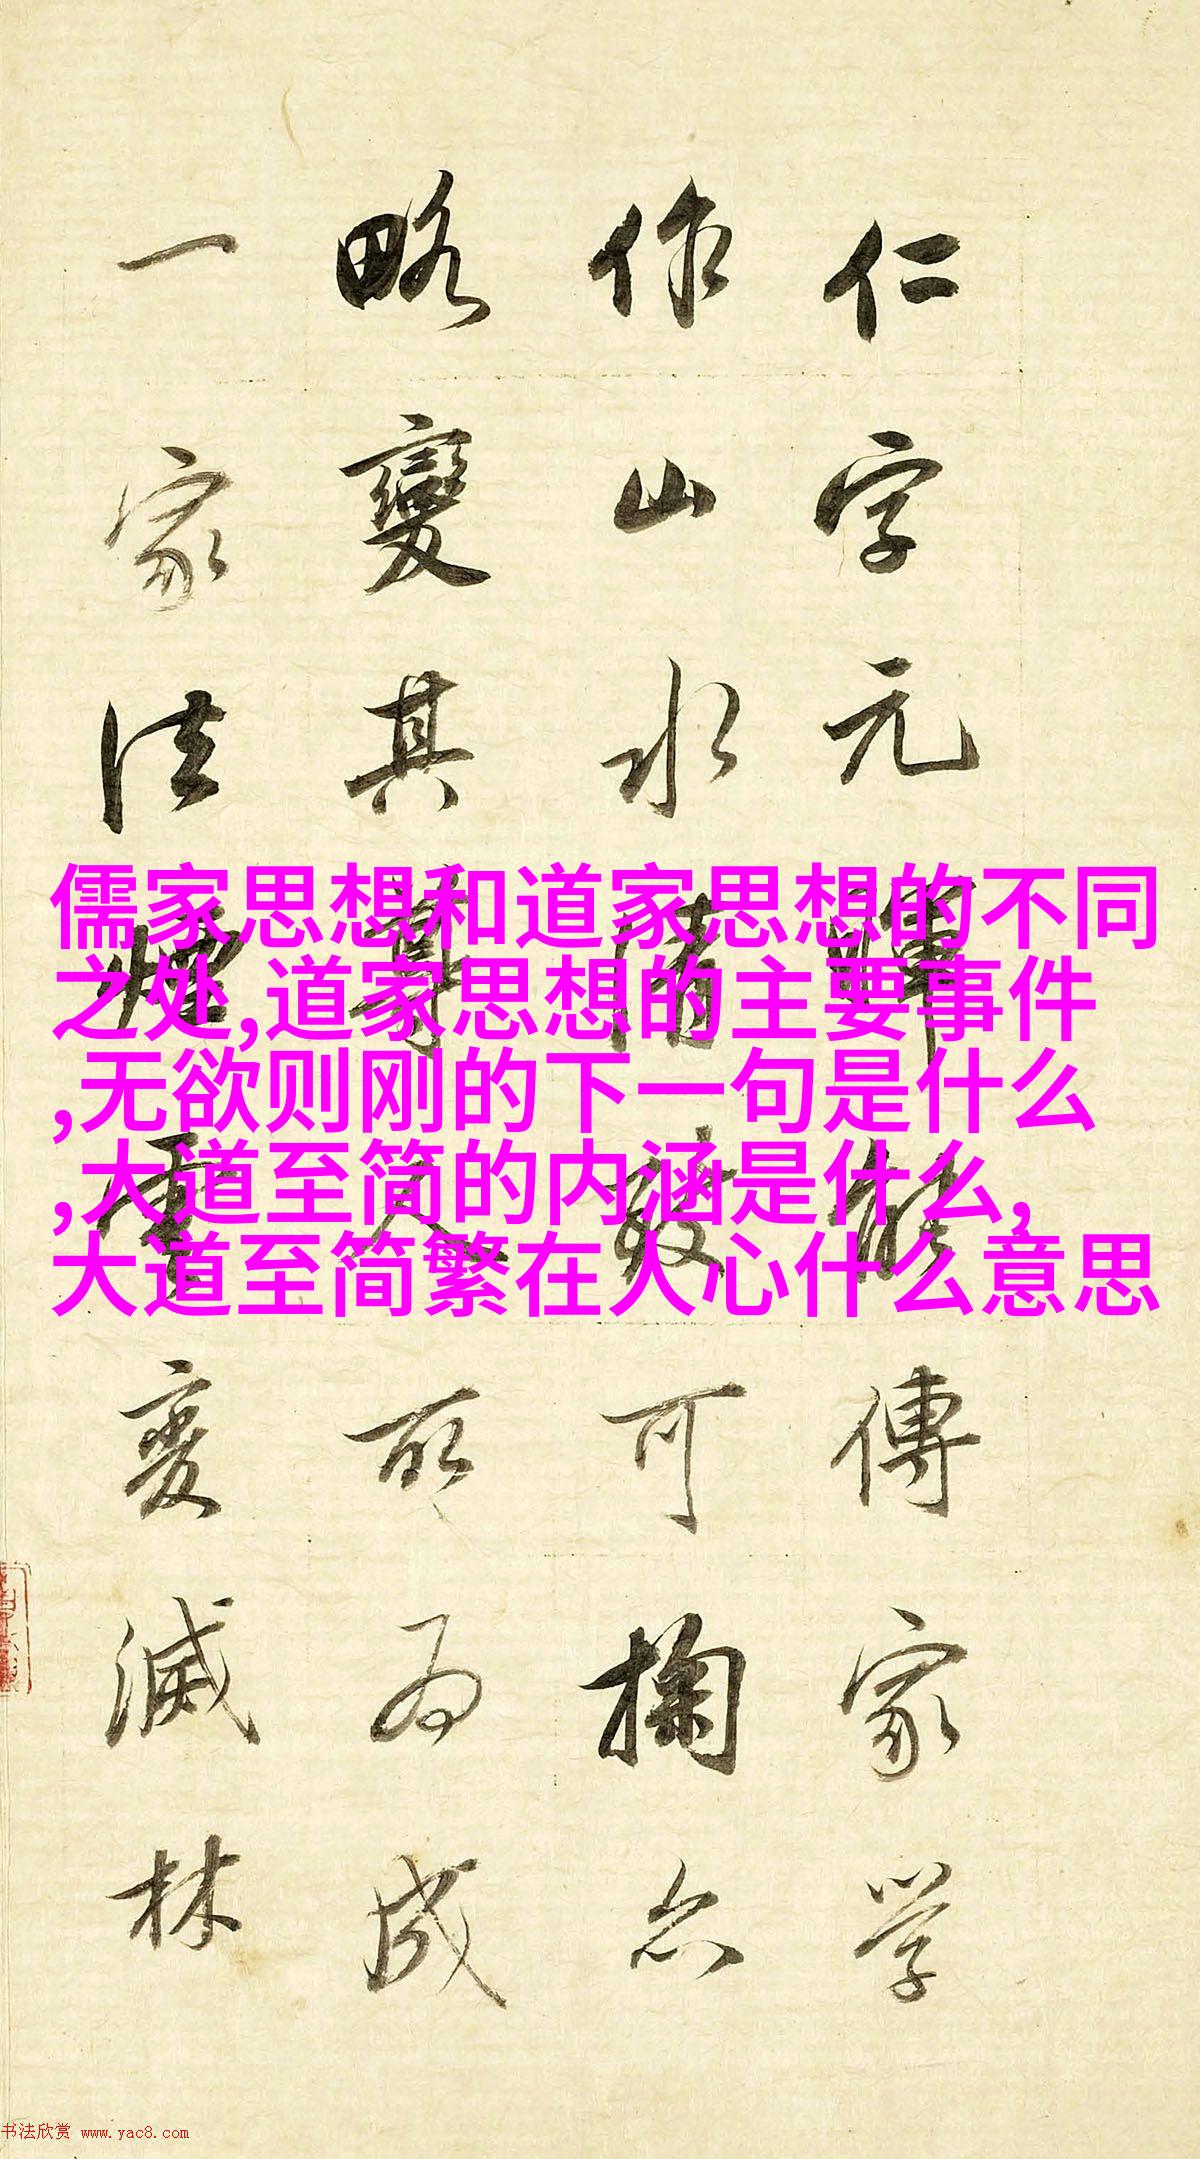 仁字元暉能傳家學
作山水清致可掬亦
略變其尊人所為成
一家法煙雲變滅林
儒家思想和道家思想的不同
之处,道家思想的主要事件
,无欲则刚的下一句是什么
,大道至简的内涵是什么,
大道至简繁在人心什么意思
书法欣赏 www.yac8.com